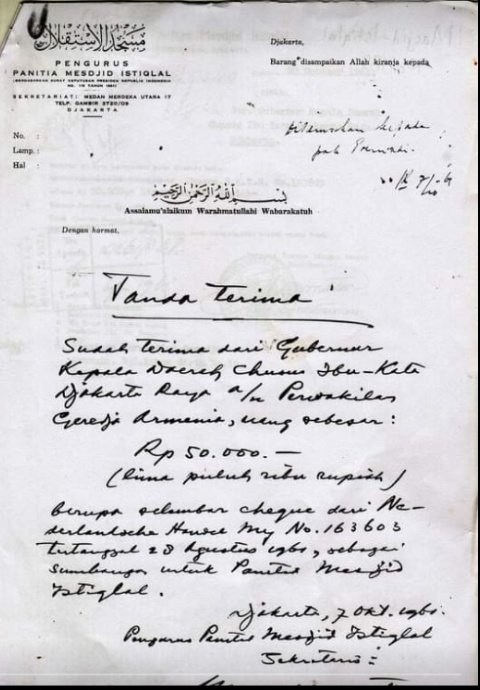 مسجد الاستقلال
PENGURUS
PANITIA MESDJID ISTIQLAL
(BERDASARKAN SURAT KEPUTUSAN PRESIDEN REPUBLIK INDONESIA
No. 119 TAHUN 1961)
SEKRETARIAT: MEDAN MERDEKA UTARA 17
TELP. GAMBIR 3720/09
DJAKARTA
Djakarta,
Barang disampaikan Allah kiranja kepada
No. :
Lamp. :
Hal :
Diteruskan kepada
pak
بسم الله الرحمن الرحيم
Assalamu'alaikum Warahmatullahi Wabarakatuh
Dengan hormat,
Tanda terima
Sudah terima dari Gubernur
Kepala Daerah Chusus Ibu-Kota
Djakarta Raya a/n Perwakilan
Geredja Armenia, uang sebesar:
Rp 50.000.—
(lima puluh ribu rupiah)
berupa selembar cheque dari Ne-
derlantsche Handel My No. 163603
tertanggal 28 Agustus 1961, sebagai
sumbangan untuk Panitia Mesdjid
Istiqlal.
Djakarta, 7 Okt. 1961.
Pengurus Panitia Mesdjid Istiqlal
Sekretaris: